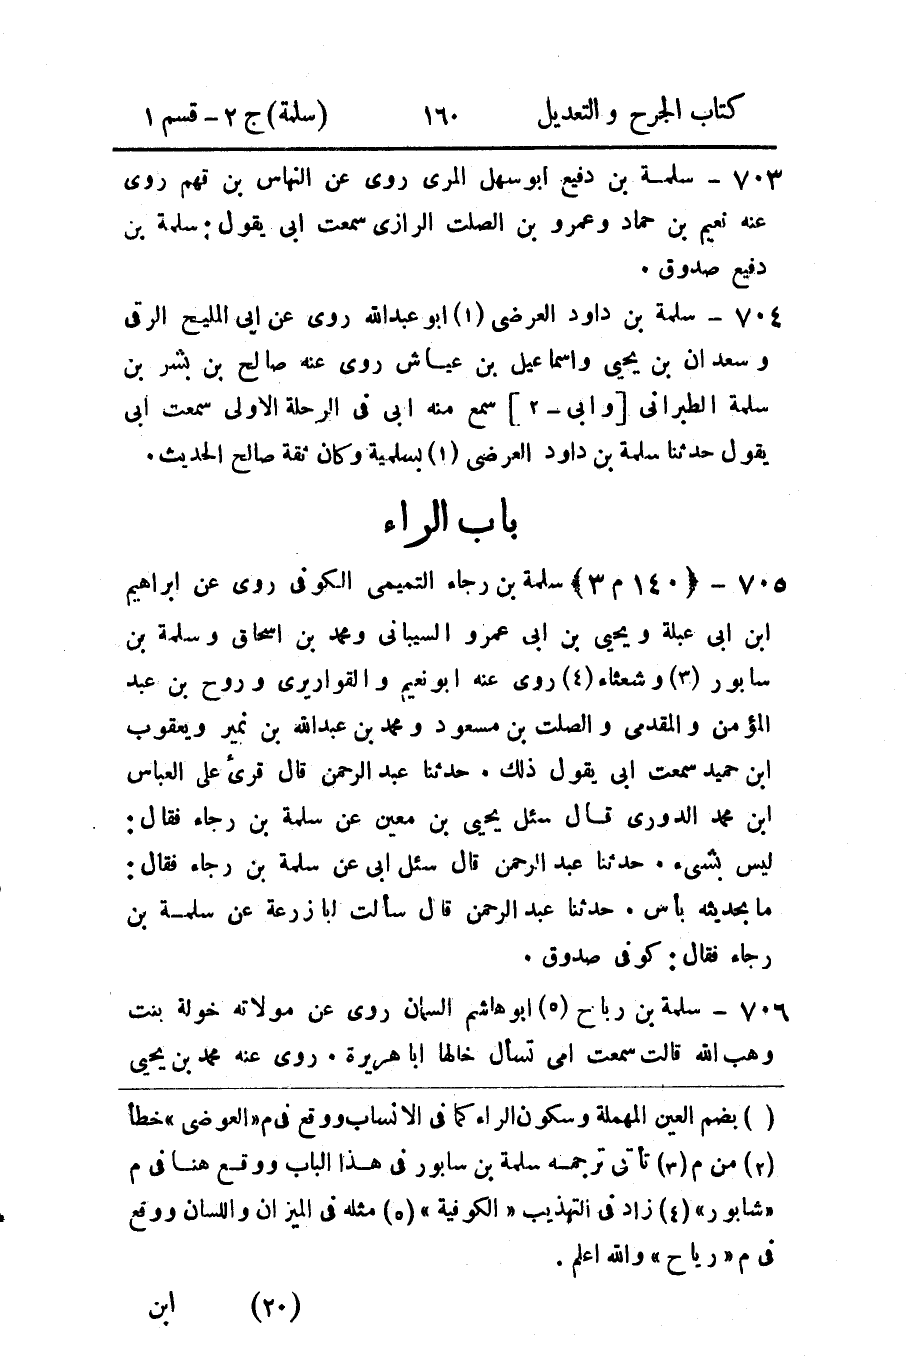 كتاب الجرح والتعديل ١٦٠ (سلمة) ج ٢ - قسم ١
٧٠٣ - سلمة بن دفيع ابو سهل المرى روى عن النهاس بن قهم روى
عنه نعيم بن حماد وعمرو بن الصلت الرازى سمعت ابى يقول: سلمة بن
دفيع صدوق ٠
٧٠٤ - سلمة بن داود العرضى (١) ابو عبدالله روى عن ابى المليح الرقى
و سعدان بن يحيى واسماعيل بن عياش روى عنه صالح بن بشر بن
سلمة الطبرانى [وابى - ٢] سمع منه ابى فى الرحلة الاولى سمعت ابى
يقول حدثنا سلمة بن داود العرضى (١) بسلمية وكان ثقة صالح الحديث ٠
باب الراء
٧٠٥ - ﴿١٤٠ م ٣﴾ سلمة بن رجاء التميمى الكوفى روى عن ابراهيم
ابن ابى عبلة ويحيى بن ابى عمرو السيبانى ومحمد بن اسحاق وسلمة بن
سابور (٣) وشعثاء (٤) روى عنه ابو نعيم والقواريرى وروح بن عبد
المؤمن والمقدمى والصلت بن مسعود ومحمد بن عبدالله بن نمير ويعقوب
ابن حميد سمعت ابى يقول ذلك ٠ حدثنا عبد الرحمن قال قرئ على العباس
ابن محمد الدورى قال سئل يحيى بن معين عن سلمة بن رجاء فقال:
ليس بشىء ٠ حدثنا عبد الرحمن قال سئل ابى عن سلمة بن رجاء فقال:
ما بحديثه بأس ٠ حدثنا عبد الرحمن قال سألت ابا زرعة عن سلمة بن
رجاء فقال: كوفى صدوق ٠
٧٠٦ - سلمة بن رباح (٥) ابو هاشم السمان روى عن مولاته خولة بنت
وهب الله قالت سمعت امى تسأل خالها ابا هريرة ٠ روى عنه محمد بن يحيى
( ) بضم العين المهملة وسكون الراء كما فى الانساب ووقع فى م «العوضى» خطأ
(٢) من م (٣) تأتى ترجمه سلمة بن سابور فى هذا الباب ووقع هنا فى م
«شابور» (٤) زاد فى التهذيب «الكوفية» (٥) مثله فى الميزان واللسان ووقع
فى م «رياح» والله اعلم .
(٢٠) ابن